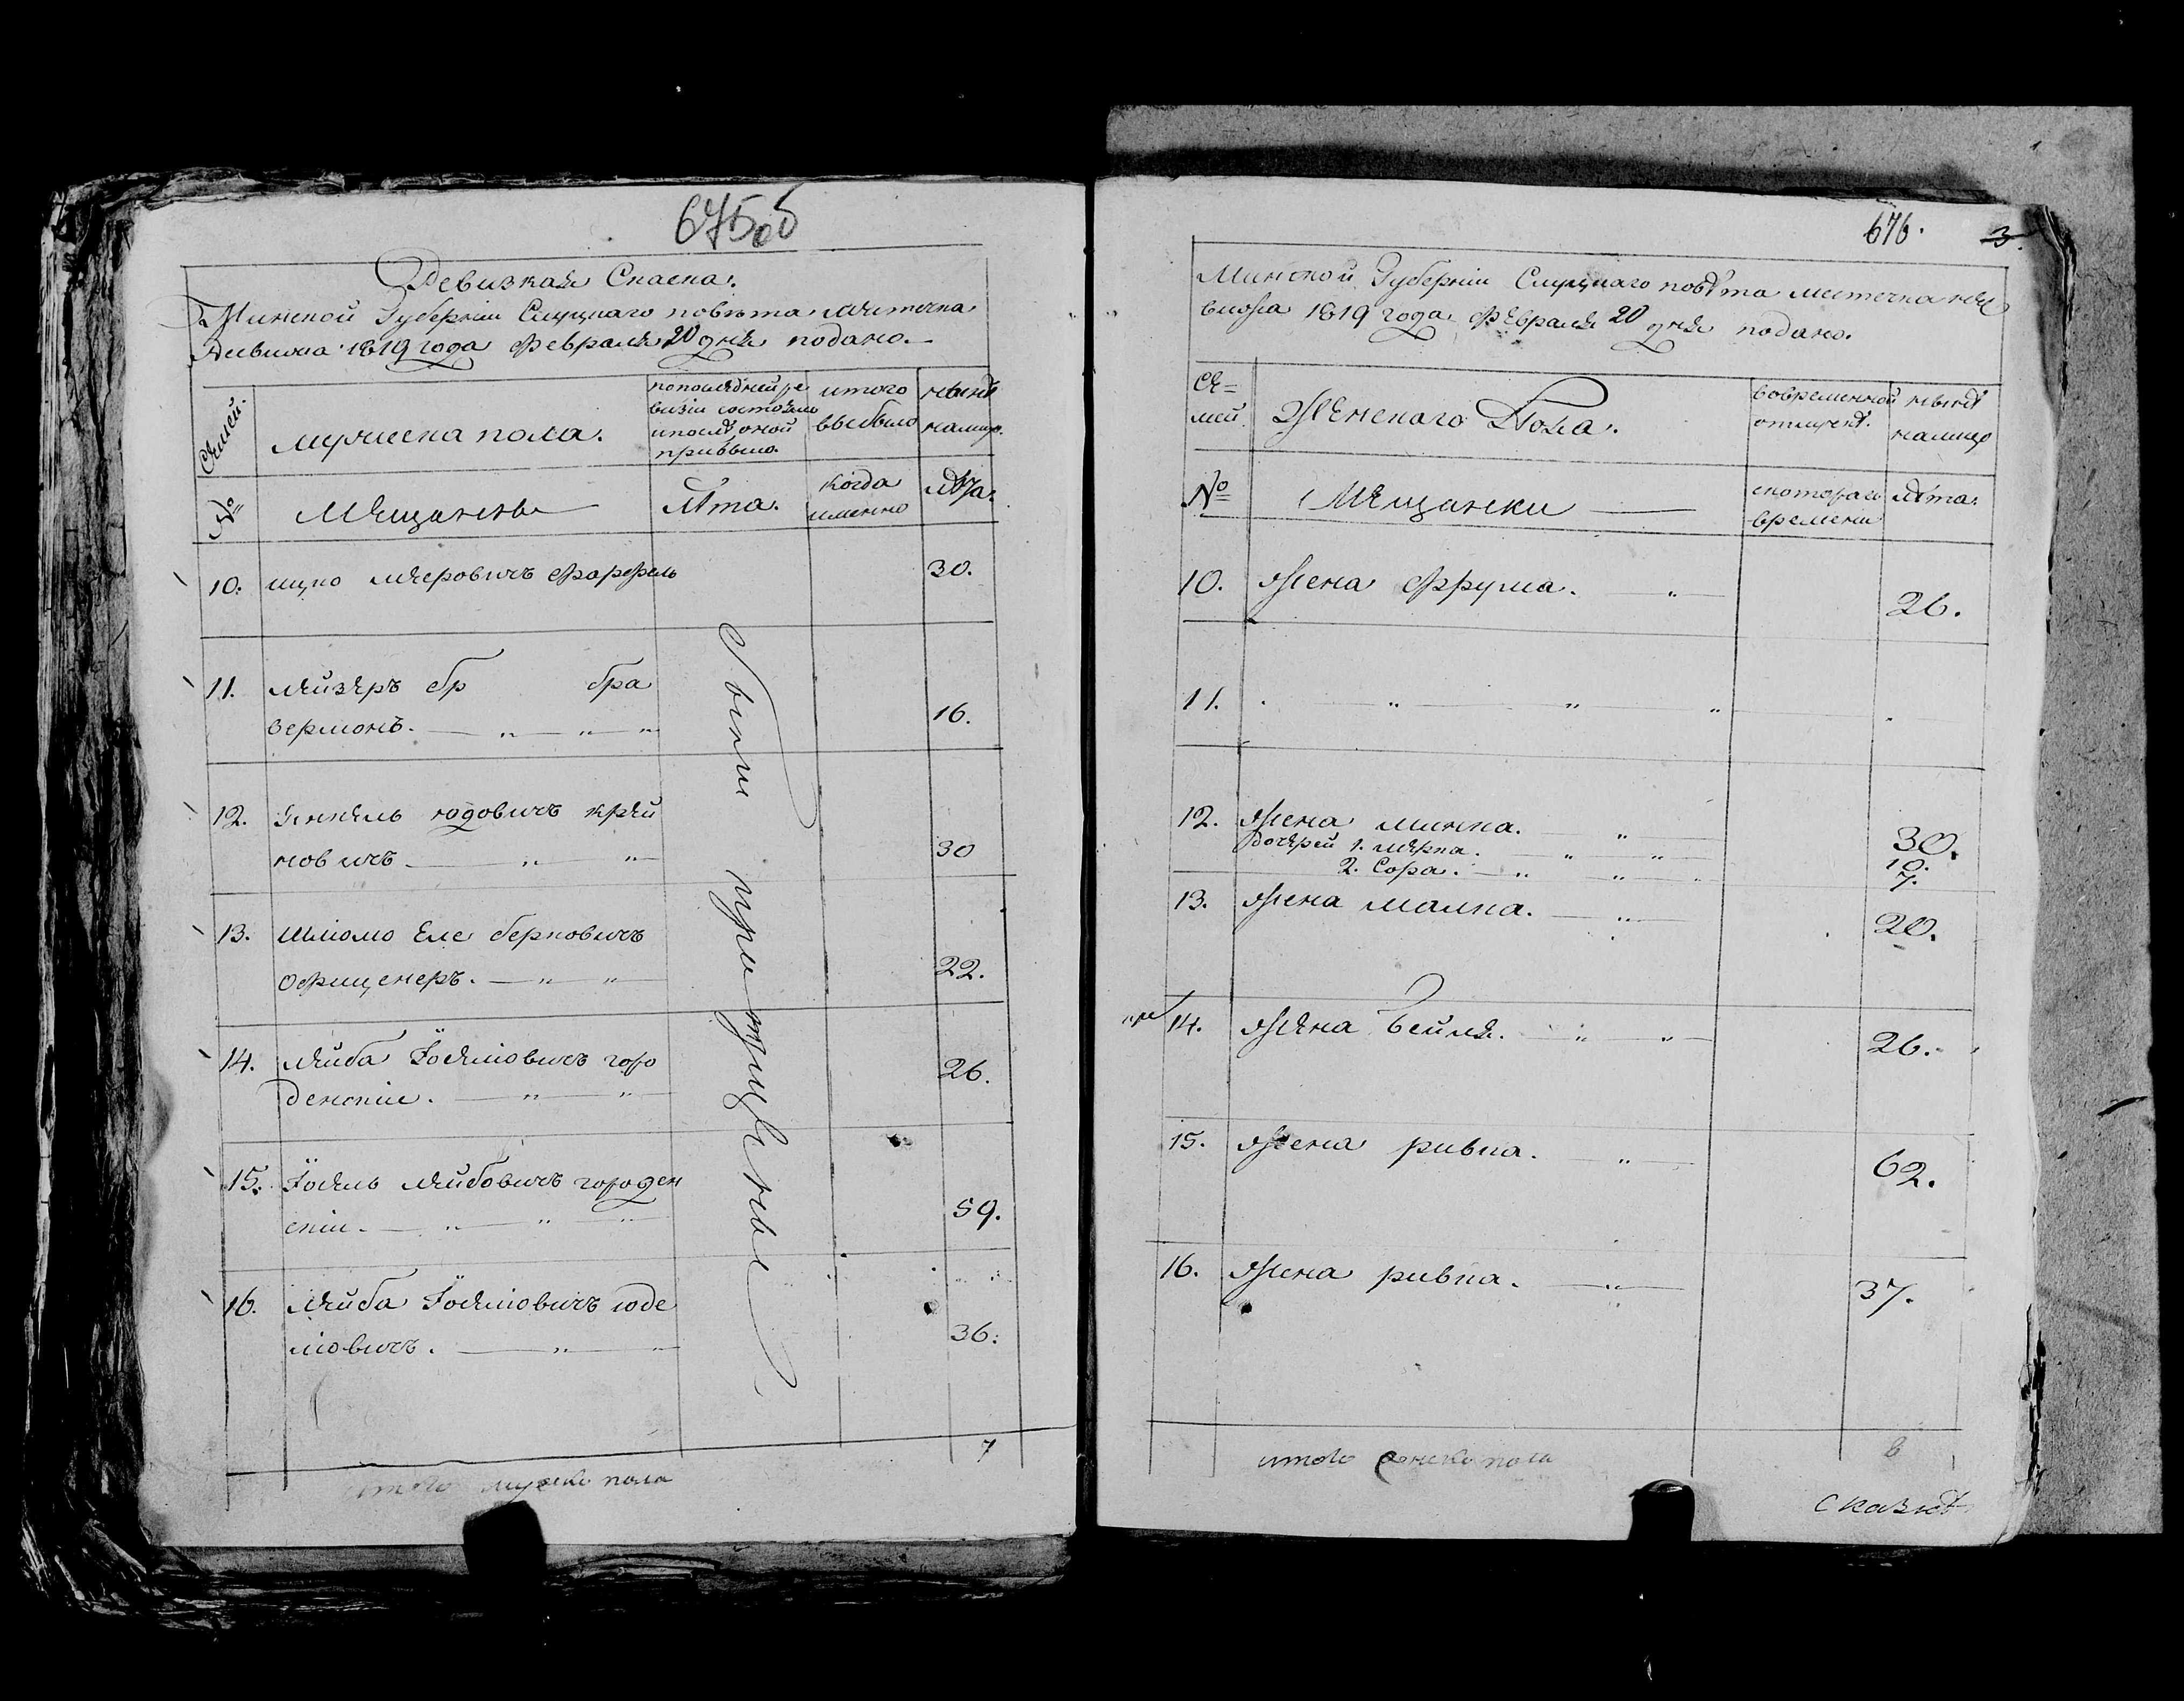 675об
Ревизкая Скаска.
Минской Губерніи Слуцкаго повѣта мѣстечка
1819 года Февраля 20 дня подано.
Семей.
мужеска пола.
попослѣдней ре
визіи состояло
ипослѣ оной
прибыло.
итого
выбыло
нынѣ
налицо.
№
Мещанень
Лѣта.
когда
именно
лѣта.
10. ицко меровичъ Фарфель 30.
11. лейзеръ бр бра
вермонъ. 16.
12. Янкель юдовичъ крей
новичъ 30
13. шліомо Еле берковичъ
офищенеръ. 22.
14. лейба Іоселіовичъ горо
денскіи. 26.
15. Іосель лейбовичъ городен
скіи. 59.
16. лейба Іоселіовичъ юде
ліовичъ. 36.
7
итого мужеско пола
676.
3.
Минской Губерніи Слуцкаго повѣта местечка
1819 года Февраля 20 дня подано.
Се=
мей
Женскаго Пола.
вовременной
отлучкѣ.
нынѣ
налицо
№
Мещанки
скотораго
времени
лѣта.
10. жена Фрума. 26.
11.
12. жена минка. 30.
дочерей 1. мерка. 10.
2. Сора. 7.
13. жена малка. 20.
14. жена бейля. 26.
15. жена ривка. 62.
16. жена ривка. 37.
6
итого женско пола